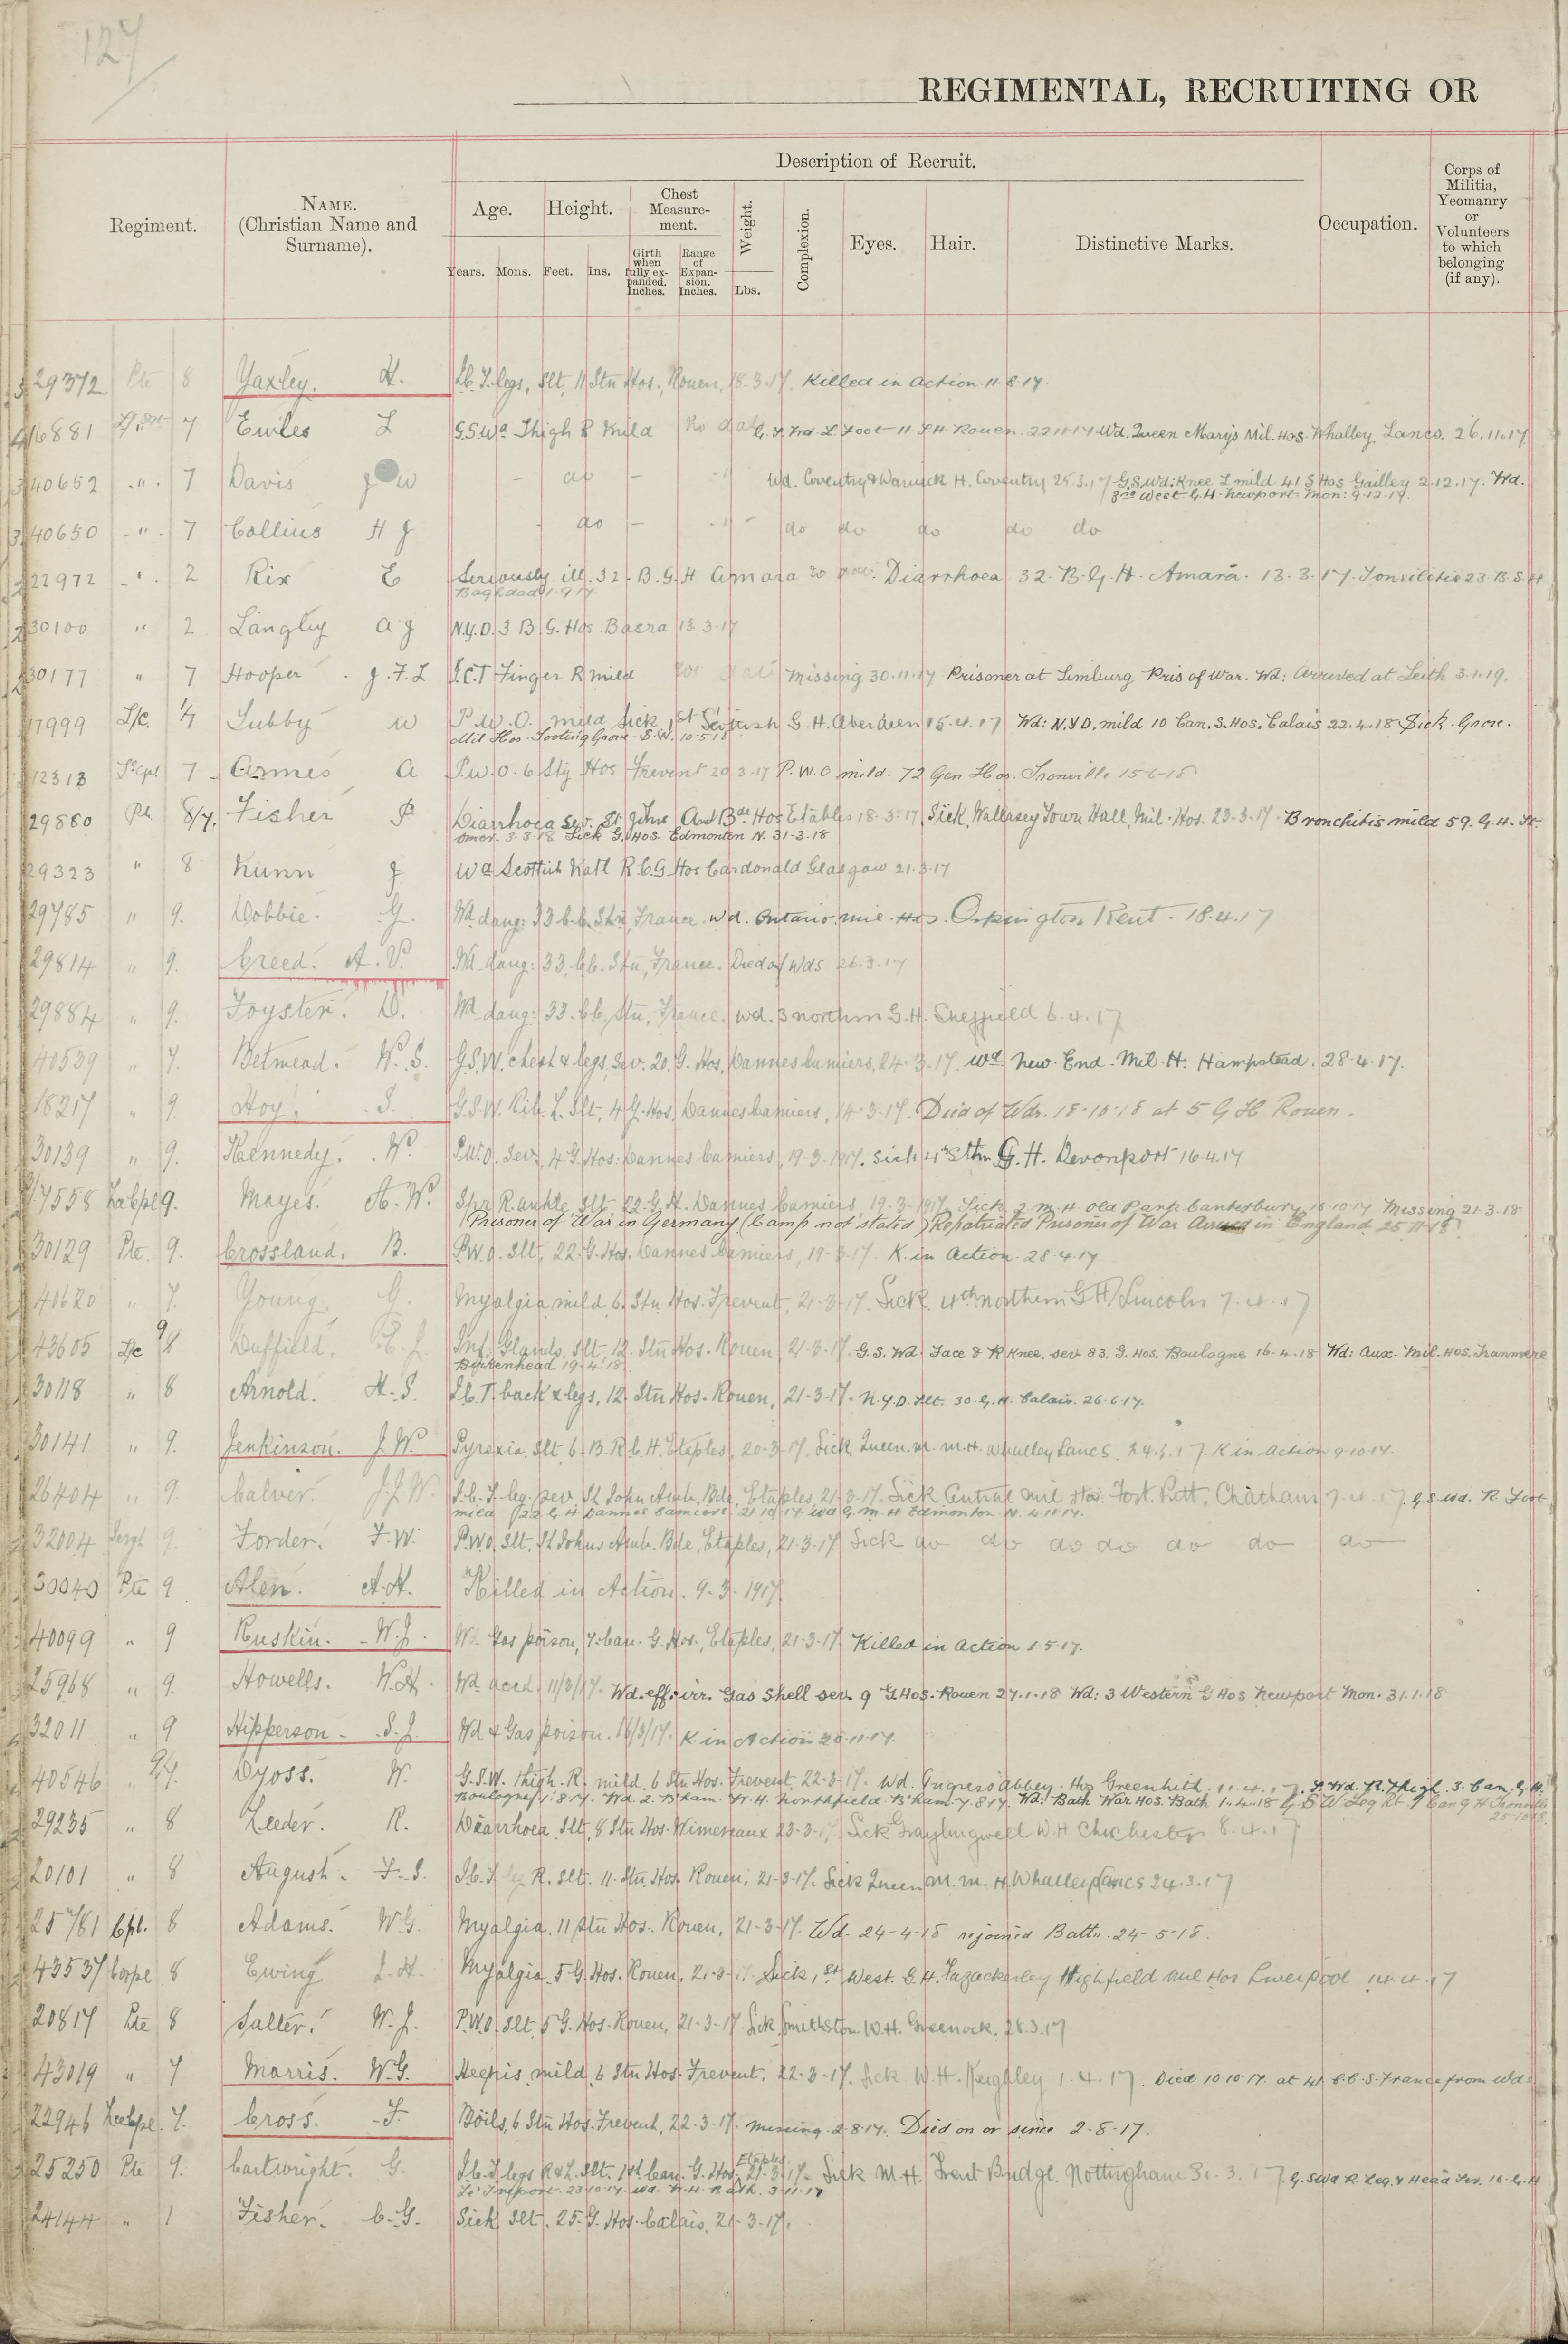 127
REGIMENTAL, RECRUITING OR
Regiment.
NAME.
(Christian Name and
Surname).
Description of Recruit.
Age.
Years. Mons.
Height.
Feet. Ins.
Chest
Measure-
ment.
Girth
when
fully ex-
panded.
Inches.
Range
of
Expan-
sion.
Inches.
Weight.
Lbs.
Complexion.
Eyes.
Hair.
Distinctive Marks.
Occupation.
Corps of
Militia,
Yeomanry
or
Volunteers
to which
belonging
(if any).
29372 Pte 8 Yaxley. H. I.C.T. legs, Slt, 11 Stn Hos., Rouen, 18.3.17. Killed in action 11.8.17.
16881 7 Ewles L G.S.Wd Thigh R Mild No date G.S. Wd. L Foot 11. S.H. Rouen. 22.11.17 Wd. Queen Mary's Mil. Hos. Whalley Lancs. 26.11.17
40652 " 7 Davis J W - do - Wd. Coventry & Warwick H. Coventry 25.3.17 G.S. Wd: Knee L mild 41 S Hos Gailley 2.12.17. Wd.
3rd West. G.H. Newport. Mon: 9.12.17.
40650 " 7 Collins H J - do - do do do do do
22972 " 2 Rix E Seriously ill. 32. B.G.H Amara no date. Diarrhoea 32. B.G.H. Amara. 13.3.17. Tonsilitis 23. B.S.H
Baghdad 1.9.17
30100 " 2 Langley A J N.Y.D. 3 B.G. Hos Basra 13.3.17
30177 " 7 Hooper J.F.L I.C.T Finger R mild no date Missing 30.11.17 Prisoner at Limburg Pris of War. Wd: Arrived at Leith 3.1.19.
17999 L/c. 1/7 Tubby W P.U.O. mild Sick 1st Scottish G.H. Aberdeen 15.4.17 Wd: N.Y.D. mild 10 Can. S. Hos. Calais 22.4.18 Sick. Grove.
Mil Hos. Tooting Grove S.W. 10.5.18
12313 L/Cpl 7 Armes A P.U.O. 6 Stg Hos Frevent 20.3.17 P.U.O mild. 72 Gen Hos. Trouville 15-6-18
29880 Pte 8/7. Fisher P Diarrhoea Sev. St. Johns Amb Bde. Hos Etables 18.3.17. Sick, Wallasey Town Hall, Mil. Hos. 23.3.17 Bronchitis mild 59. G.H. St.
Omer. 3.3.18 Sick G. Hos. Edmonton N. 31-3-18
29323 " 8 Nunn J Wd Scottish Natl R.C.G. Hos Cardonald Glasgow 21.3.17
29785 " 9. Dobbie. G. Wd dang: 33 C.C. Stn, France. Wd. Ontario. Mil. Hos. Orpington Kent. 18.4.17
29814 " 9. Creed. A.V. Wd dang: 33 C.C. Stn, France. Died of Wds 26.3.17
29884 " 9. Foyster. D. Wd dang: 33. C.C. Stn, France. Wd. 3 Northern G.H. Sheffield 6.4.17
40539 " 7. Betmead. W.S. G.S.W. chest & legs, Sev. 20. G. Hos, Dannes Camiers, 24.3.17. Wd New. End. Mil. H. Hampstead. 28.4.17.
18217 " 9. Hoy. S. G.S.W. Rib. L. Slt, 4 G. Hos. Dannes Camiers, 14.3.17. Died of Wds. 18.10.18 at 5 G H Rouen.
30139 " 9. Kennedy. W. P.U.O. Sev, 4 G. Hos. Dannes Camiers, 19-3-1917. Sick 4th Sthn G.H. Devonport 16.4.17
17558 9. Mayes. A.W. Spr. R. ankle Slt. 22. G.H. Dannes Camiers, 19.3.1917. Sick M.H Old Park Canterbury, 16.10.17 Missing 21.3.18
(Prisoner of War in Germany (Camp not stated) Repatriated Prisoner of War Arrived in England 25.11.18
30129 Pte. 9. Crossland. B. P.U.O. Slt. 22. G. Hos. Dannes Camiers, 19-3-17. K. in Action. 28.4.17
40620 " 7. Young. G. Myalgia mild 6. Stn Hos. Frevent, 21-3-17. Sick. 4th Northern G H Lincoln 7.4.17
43605 L/c 9/8 Duffield. Inf: Glands, Slt. 12. Stn Hos. Rouen, 21-3-17. G.S. Wd. Face & R Knee. sev 83. G. Hos. Boulogne 16-4-18 Wd: Aux. Mil. Hos. Tranmere
Birkenhead 19.4.18
30118 " 8 Arnold. H.S. I.C.T. back & legs, 12. Stn Hos. Rouen, 21-3-17. N.Y.D. Slt. 30. G.H. Calais. 26.6.17.
30141 " 9. Jenkinson. J.W. Pyrexia, Slt, 6 B.R.C.H. Etaples, 20-3-17. Sick Queen. M. M.H. Whalley Lancs. 24.3.17. K in action 9.10.17.
26404 " 9. Calver. J.J.W. I.C.T. leg. Sev. St John Amb. Bde, Etaples, 21-3-17. Sick Central Mil Hos Fort Pitt. Chatham 7.4.17. G.S. Wd. R. Foot
mild (22 G.H Dannes Camiers 21.10.17 Wd G.M.H Edmonton N. 4.11.17.
32004 Sergt 9. Forder. F.W. P.U.O. Slt. St Johns Amb. Bde, Etaples, 21-3-17. Sick do do do do do do do
30040 Pte 9 Alen. A.H. Killed in Action. 9-3-1917.
40099 " 9 Ruskin. W.J. Wd. Gas poison, 7. Can. G. Hos., Etaples, 21-3-17. Killed in action 1.5.17.
25968 " 9. Howells. W.H. Wd accd. 11/3/17. Wd. eff. irr. Gas Shell sev. 9 G Hos. Rouen 27.1.18 Wd: 3 Western G Hos Newport Mon. 31.1.18
32011 " 9 Hipperson. S.J. Wd & Gas poison. 16/3/17. K. in Action 20.11.17.
40546 " 9/7. Dyoss. W. G.S.W. thigh. R. mild. 6 Stn Hos. Frevent. 22-3-17. Wd. Ingress Abbey. Hos Greenhith. 11.4.17. S. Wd. R. Thigh. 3. Can. G.H.
Boulogne 1.8.17. Wd. 2. B'ham. W.H. Northfield B'ham 7.8.17. Wd: Bath War Hos. Bath 1.4.18 G S W Leg Rt. 7 Can G H
29235 " 8 Leeder. R. Diarrhoea, Slt, 8 Stn Hos. Wimereaux 23-3-17. Sick Graylingwell W H Chichester 8.4.17
20101 " 8 August. F.S. I.C.T leg R. Slt. 11. Stn Hos. Rouen, 21-3-17. Sick Queen M. M. H. Whalley Lancs 24.3.17
25781 Cpl. 8 Adams. W.G. Myalgia. 11 Stn Hos. Rouen, 21-3-17. Wd. 24-4-18 rejoined Battn. 24-5-18.
43537 Corpl 8 Ewing J.H. Myalgia. 5 G. Hos. Rouen, 21-3-17. Sick, 1st West. G.H. Fazackerley Highfield Mil Hos Liverpool 14.4.17
20817 Pte 8 Salter. W.J. P.U.O. Slt, 5 G. Hos. Rouen, 21-3-17. Sick Smithston W.H. Greenock. 28.3.17
43019 " 7 Morris. W.G. mild, 6 Stn Hos. Frevent. 22-3-17. Sick W.H. Keighley 1.4.17. Died 10.10.17. at 41 C.C.S. France from Wds.
22946 7. Cross. F. Boils, 6 Stn Hos. Frevent, 22-3-17. Missing. 2.8.17. Died on or since 2-8-17.
25250 Pte 9. Cartwright. G. I.C.T. legs R & L. Slt. 1st Can. G. Hos. Etaples 21-3-17. Sick M.H. Trent Bridge. Nottingham 31.3.17. G.S Wd R. Leg. & Head Sev. 16. G.H
Le Treport. 23.10.17. Wd. W.H. Bath. 3.11.17
24144 " 1 Fisher. C.G. Sick Slt. 25. G. Hos. Calais, 21-3-17.